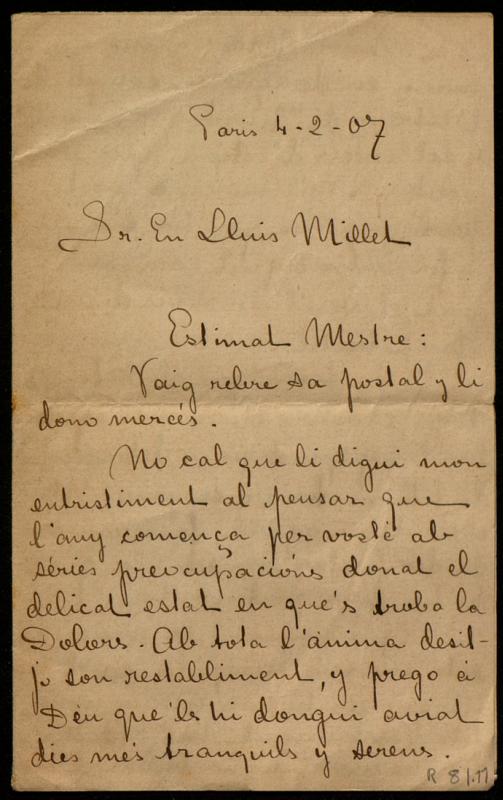 Paris 4-2-07
Sr. En Lluis Millet
Estimat Mestre:
Vaig rebre sa postal y li
dono mercés.
No cal que li digui mon
entristiment al pensar que
l'any comença per vosté ab
séries preocupacións donat el
delicat estat en que's troba la
Dolors. Ab tota l'ánima desit-
jo son restabliment, y prego á
Déu que'ls hi dongui aviat
dies més tranquils y serens.
R 81.11